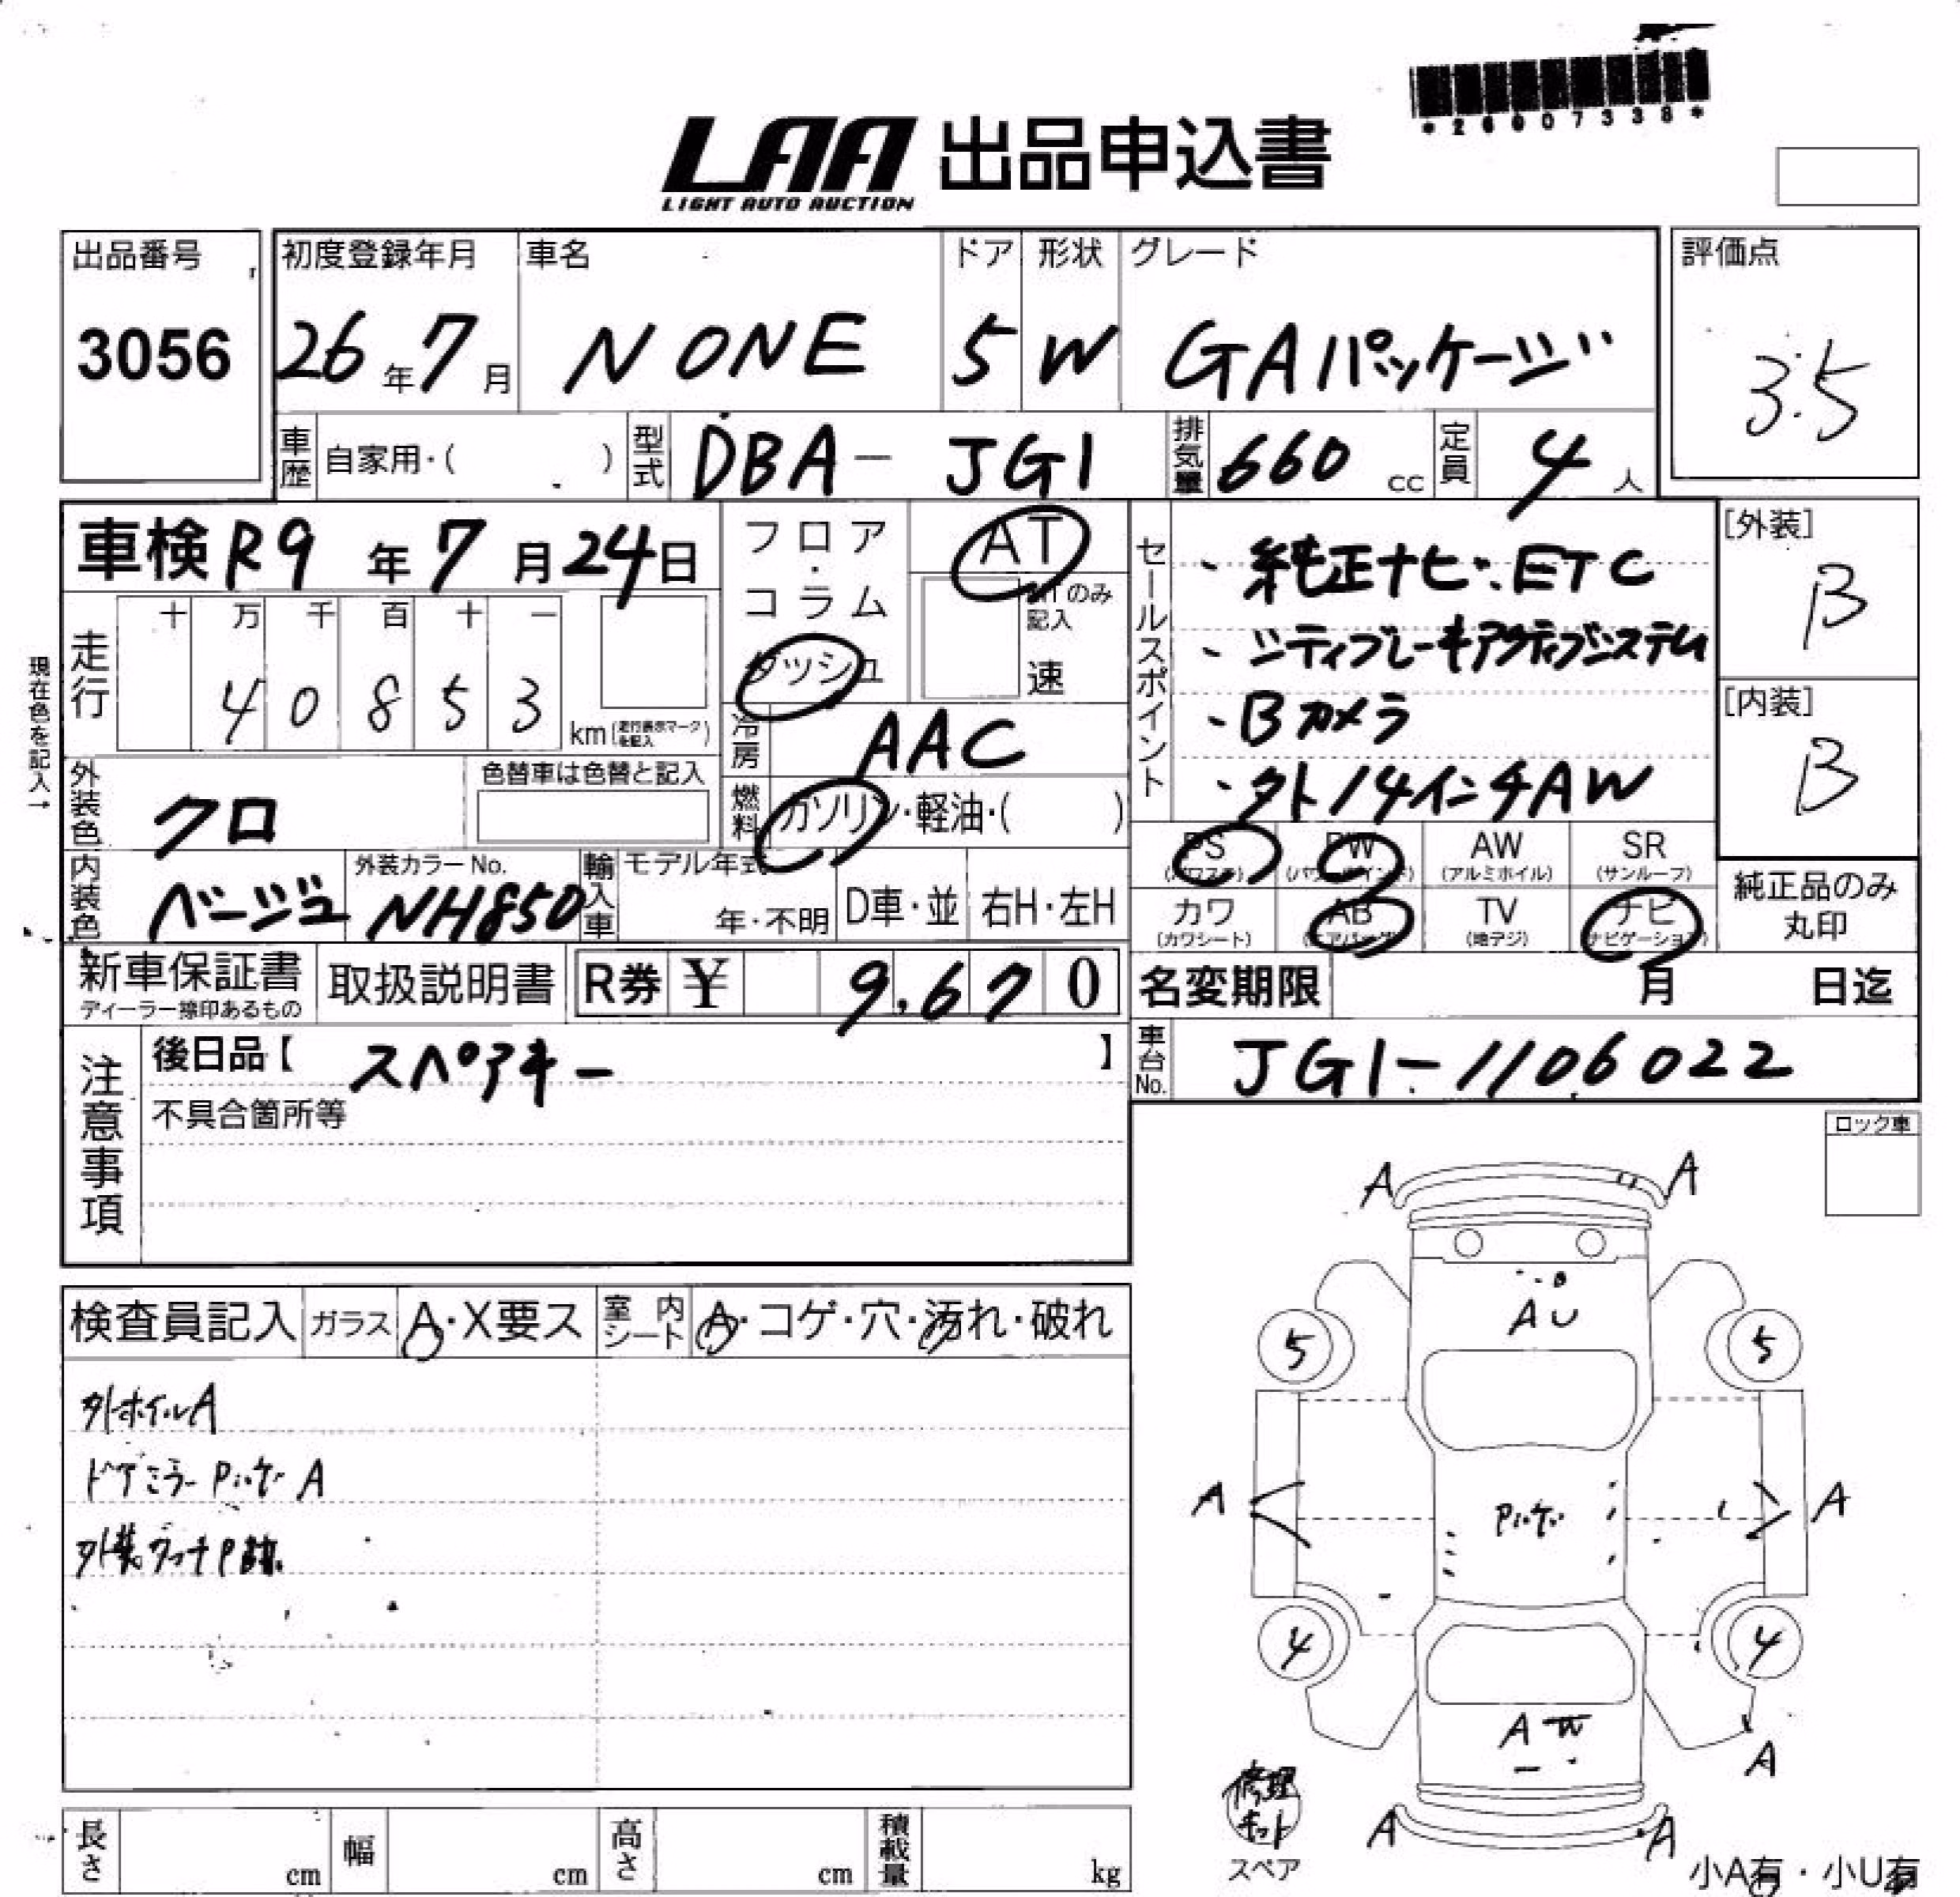 *26007338*
LAA 出品申込書
LIGHT AUTO AUCTION
出品番号 初度登録年月 車名 ドア 形状 グレード 評価点
3056 26年7月 N ONE 5 W GAパッケージ 3.5
車歴 自家用・( ) 型式 DBA- JG1 排気量 660 cc 定員 4 人
車検 R9 年 7 月 24日 フロア・コラム AT セールスポイント ・純正ナビ・ETC [外装]
ダッシュ MTのみ記入 速 ・シティブレーキアクティブシステム B
現在色を記入→
走行 十 万 千 百 十 一
4 0 8 5 3 km (走行表示マークを記入) 冷房 AAC ・Bカメラ [内装]
外装色 クロ 色替車は色替と記入 燃料 ガソリン・軽油・( ) ・外14インチAW B
PS (パワステ) PW (パワーウインド) AW (アルミホイル) SR (サンルーフ) 純正品のみ
内装色 ベージュ 外装カラーNo. NH850 輸入車 モデル年式 年・不明 D車・並 右H・左H カワ (カワシート) AB (エアバッグ) TV (地デジ) ナビ (ナビゲーション) 丸印
新車保証書 取扱説明書 R券 ¥ 9,670 名変期限 月 日迄
ディーラー捺印あるもの
注意事項 後日品【 スペアキー 】 車台No. JG1-1106022
不具合箇所等
ロック車
A A
検査員記入 ガラス A・X要ス 室内シート A・コゲ・穴・汚れ・破れ
A U
5 5
外ホイルA
ドアミラー Pキズ A
A Pキズ A
外装タッチP跡
4 4
A W
A
修理キット
A A
長さ cm 幅 cm 高さ cm 積載量 kg スペア 小A有・小U有